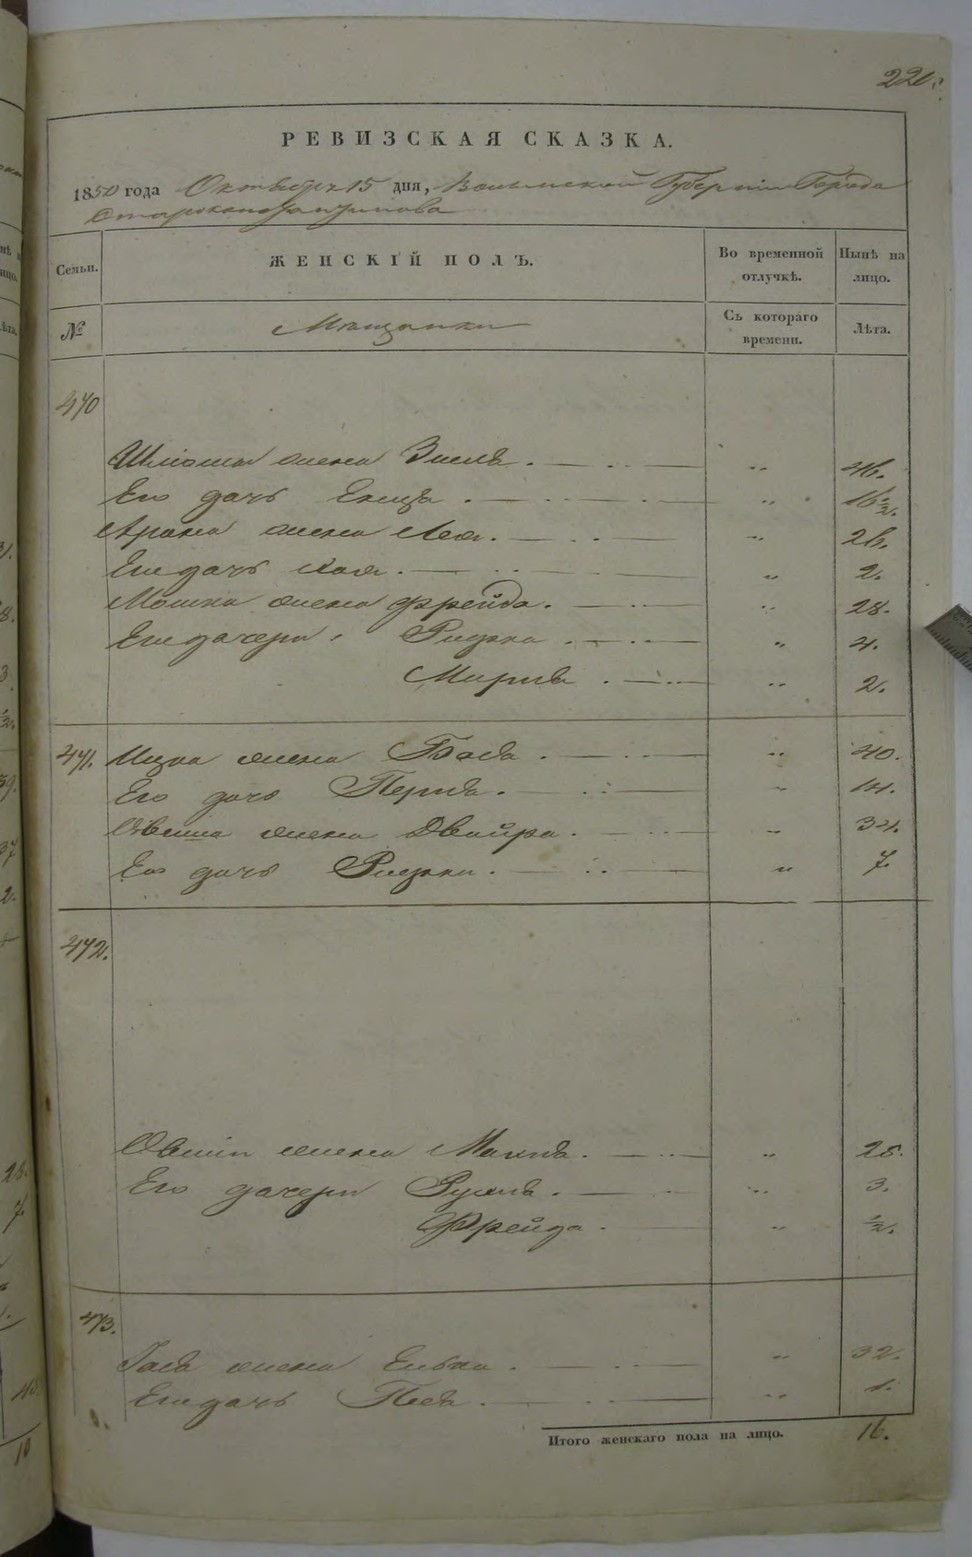 220.
РЕВИЗСКАЯ СКАЗКА.
1850 года Октября 15 дня, Волынской Губерніи Города
Староконстантинова
Семьи. ЖЕНСКІЙ ПОЛЪ. Во временной отлучкѣ. Нынѣ на лицо.
№ Мѣщанки Съ котораго времени. Лѣта.
470
Шліома жена 46.
Его дочь 16 1/2.
Арона жена Лея. 26.
Его дочь Хая. 2.
Мошка жена Фрейда. 28.
Его дочери Ривка 4.
2.
471. Ицка жена Бася. 40.
Его дочь Перля. 14.
Овшіа жена Двойра. 34.
Его дочь Ривка. 7.
472.
Овшіи жена Малка. 25.
Его дочери Рухля. 3.
Фрейда 1/2.
473.
жена Элька. 32.
Его дочь 1.
Итого женскаго пола на лицо. 16.